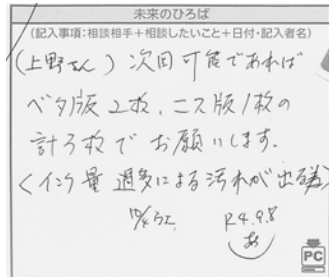 未来のひろば
(記入事項:相談相手+相談したいこと+日付・記入者名)
(上野さん) 次回可能であれば
ベタ版2枚、ニス版1枚の
計3枚でお願いします。
<インク量過多による汚れが出る為>
R4.9.8
あ
PC